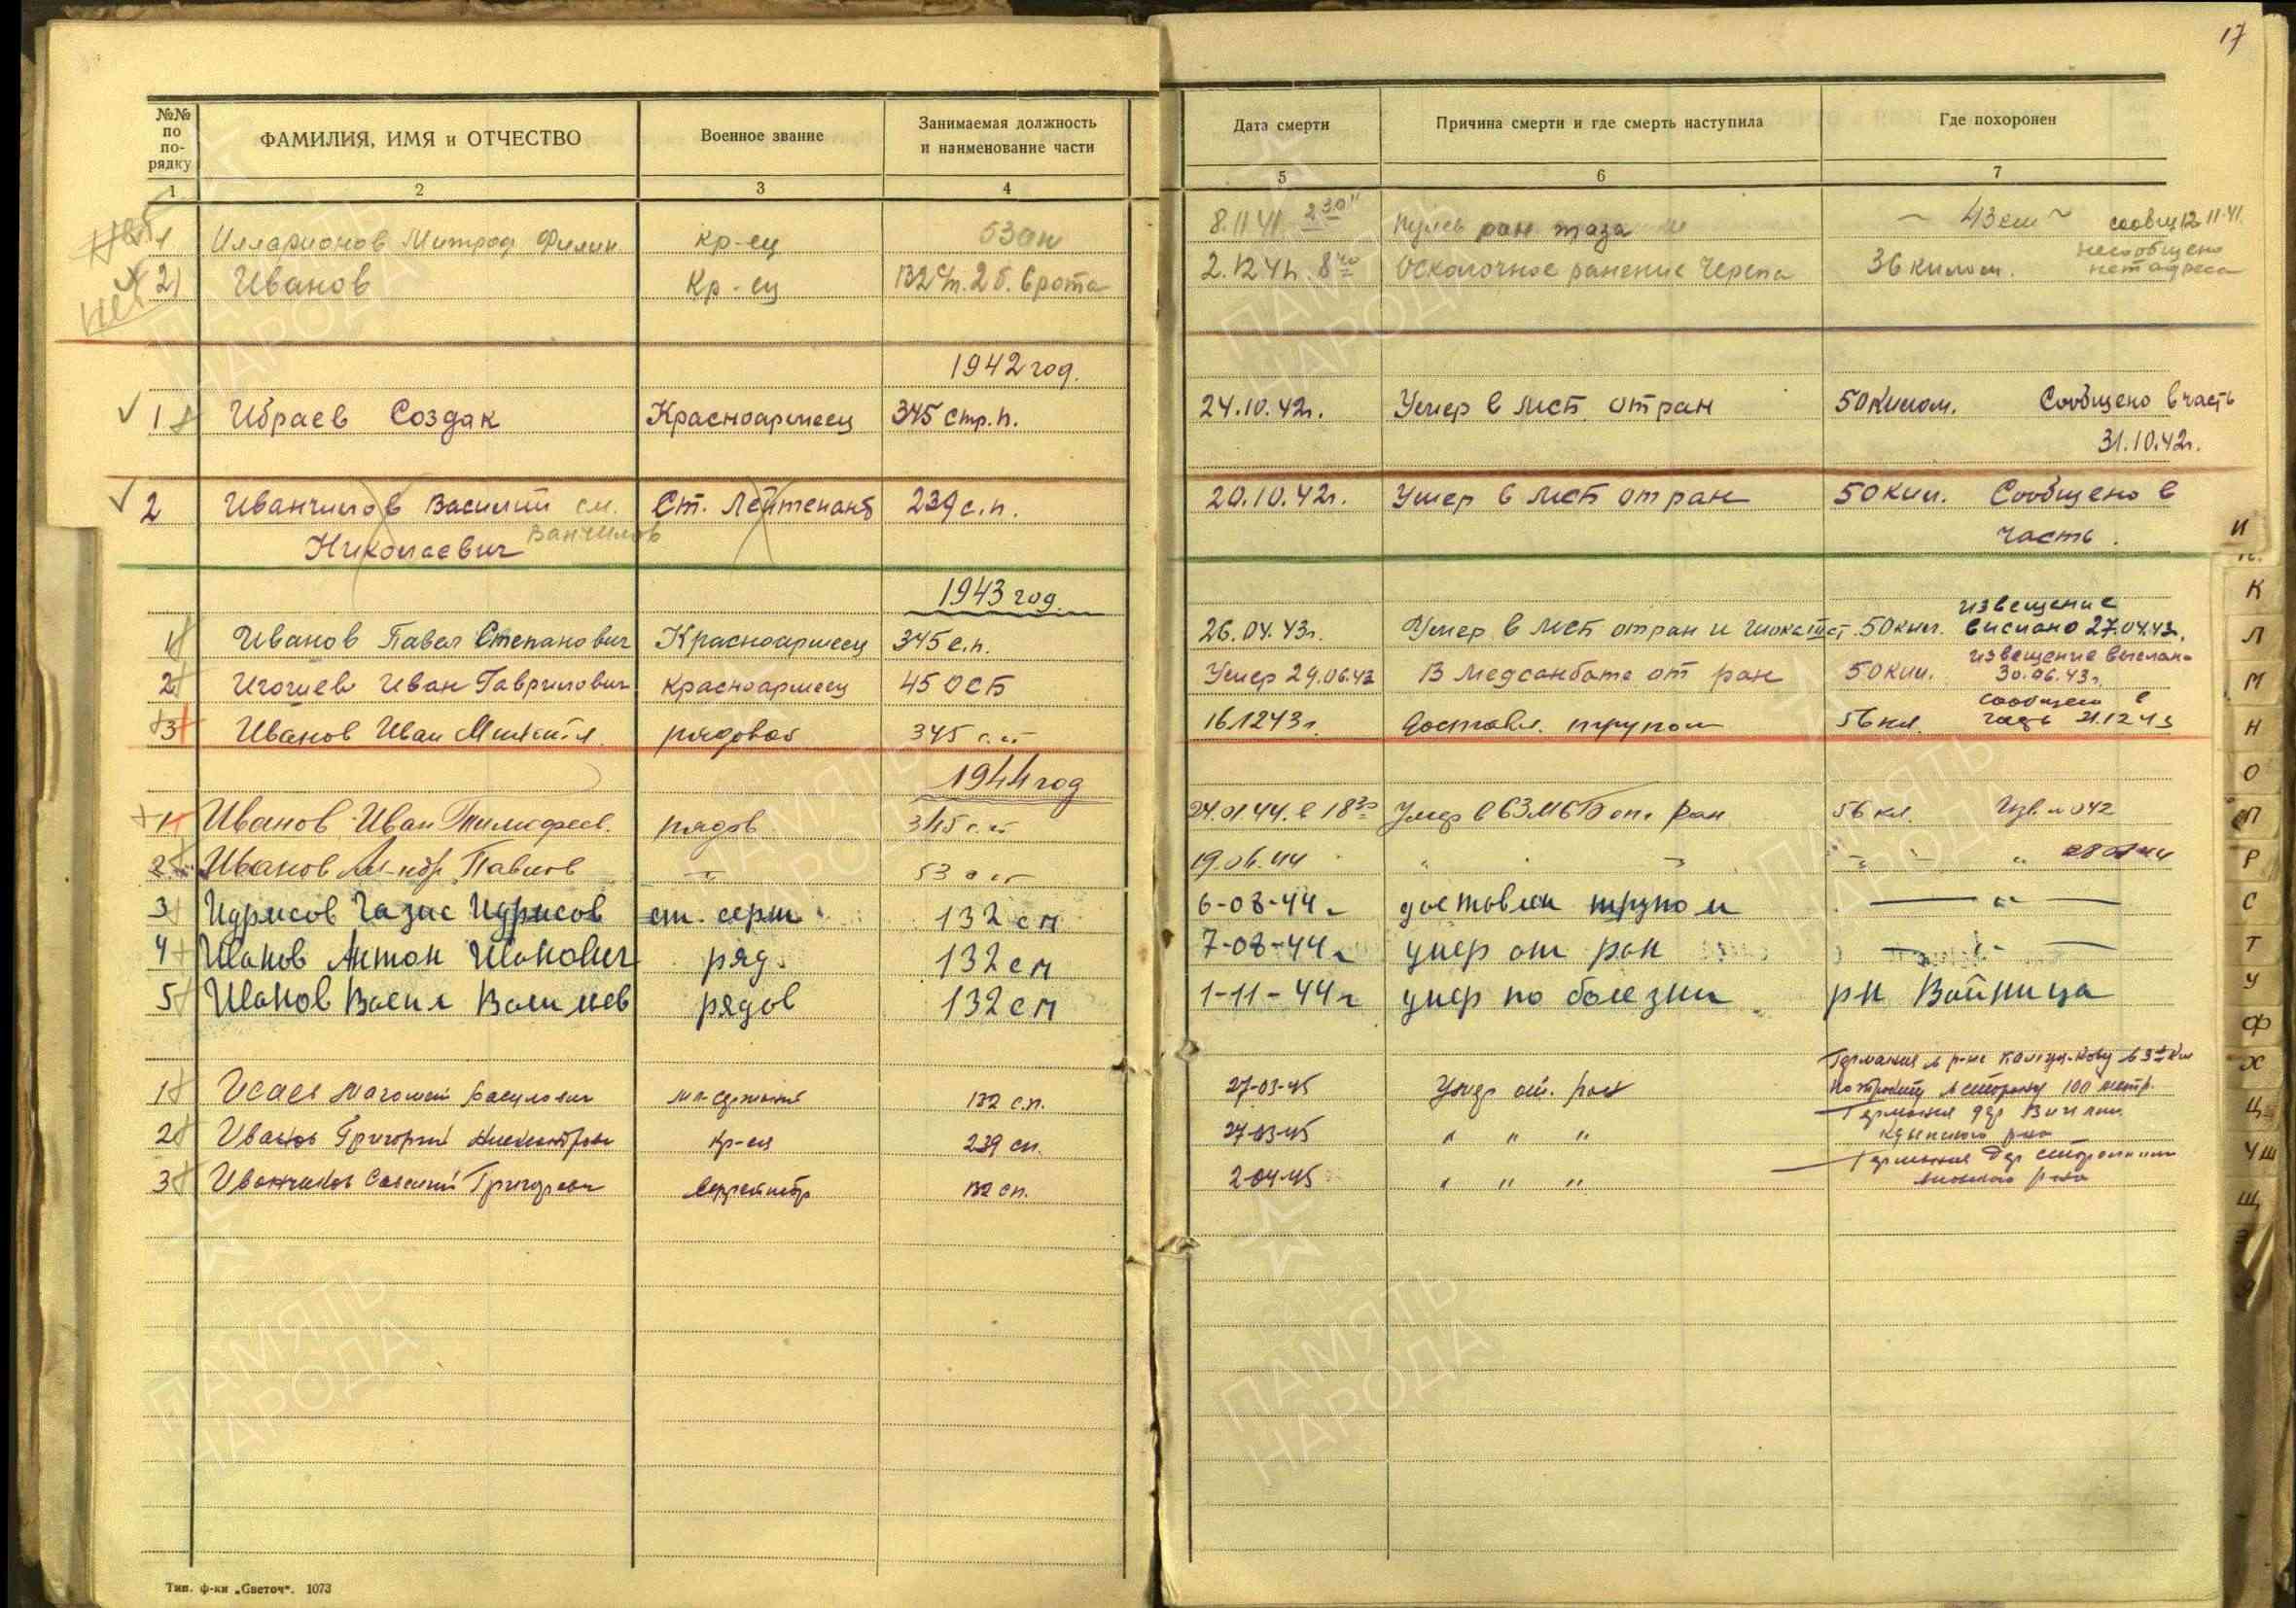 17
№№ по по-рядку
ФАМИЛИЯ, ИМЯ и ОТЧЕСТВО
Военное звание
Занимаемая должность и наименование части
Дата смерти
Причина смерти и где смерть наступила
Где похоронен
1 2 3 4 5 6 7
1 Илларионов Митроф Филип кр-ец 53 ап 8.11 41 2 30 Пулев ран таза 43 км сообщ 12.11.41.
нет 2) Иванов Кр-ец 132 сп. 2 б. 6 рота 2.12 41г. 8 40 Осколочное ранение черепа 36 килом. несообщено
нет адреса
1942 год.
1 Ибраев Создак Красноармеец 345 стр. п. 24.10.42г. Умер в МСБ от ран 50 килом. Сообщено в часть
31.10.42г.
2 Иванчилов Василий см. Ст. Лейтенант 239 с.п. 20.10.42г. Умер в МСБ от ран 50 кил. Сообщено в
Николаевич Ванчилов часть.
1943 год.
извещение
1 Иванов Павел Степанович Красноармеец 345 с.п. 26.04.43г. Умер в МСБ от ран и шока III ст. 50 кил. выслано 27.04.43г.
извещение выслано
2 Игошев Иван Гаврилович красноармеец 45 ОСБ Умер 29.06.43 В Медсанбате от ран 50 кил. 30.06.43г.
сообщен в
3 Иванов Иван рядовой 345 с.п 16.12 43г. Доставл. трупом 56 кл. часть 21.12 43
1944 год
1 Иванов Иван рядов 345 с.п 24.01 44. в 18 30 Умер в 63 МСБ от ран 56 кл. Изв. № 042
2 Иванов Ал-ндр. Павлов 〃 53 19.06.44 〃 〃
3 Идрисов Газис Идрисов ст. серж 132 сп 6-08-44г доставлен трупом 〃
4 Иванов Антон Иванович ряд. 132 сп 7-08-44г умер от ран 〃
5 Иванов Васил Васильев рядов 132 сп 1-11-44г умер по болезни рн Войница
1 Исаев мл-сержант 132 с.п. 27-03-45 Умер от. ран Германия в р-не
в сторону 100 метр.
2 Иванов Григорий Александрович Кр-ец 239 сп. 27-03-45 〃 〃 〃 Германия дер
3 Иванчиков Григорьевич Ефрейтор 132 сп. 2-04-45 〃 〃 〃 Германия дер
И
К
Л
М
Н
О
П
Р
С
Т
У
Ф
Х
Ц
Ч Ш
Щ
Тип. ф-ки „Светоч“. 1073
ПАМЯТЬ НАРОДА